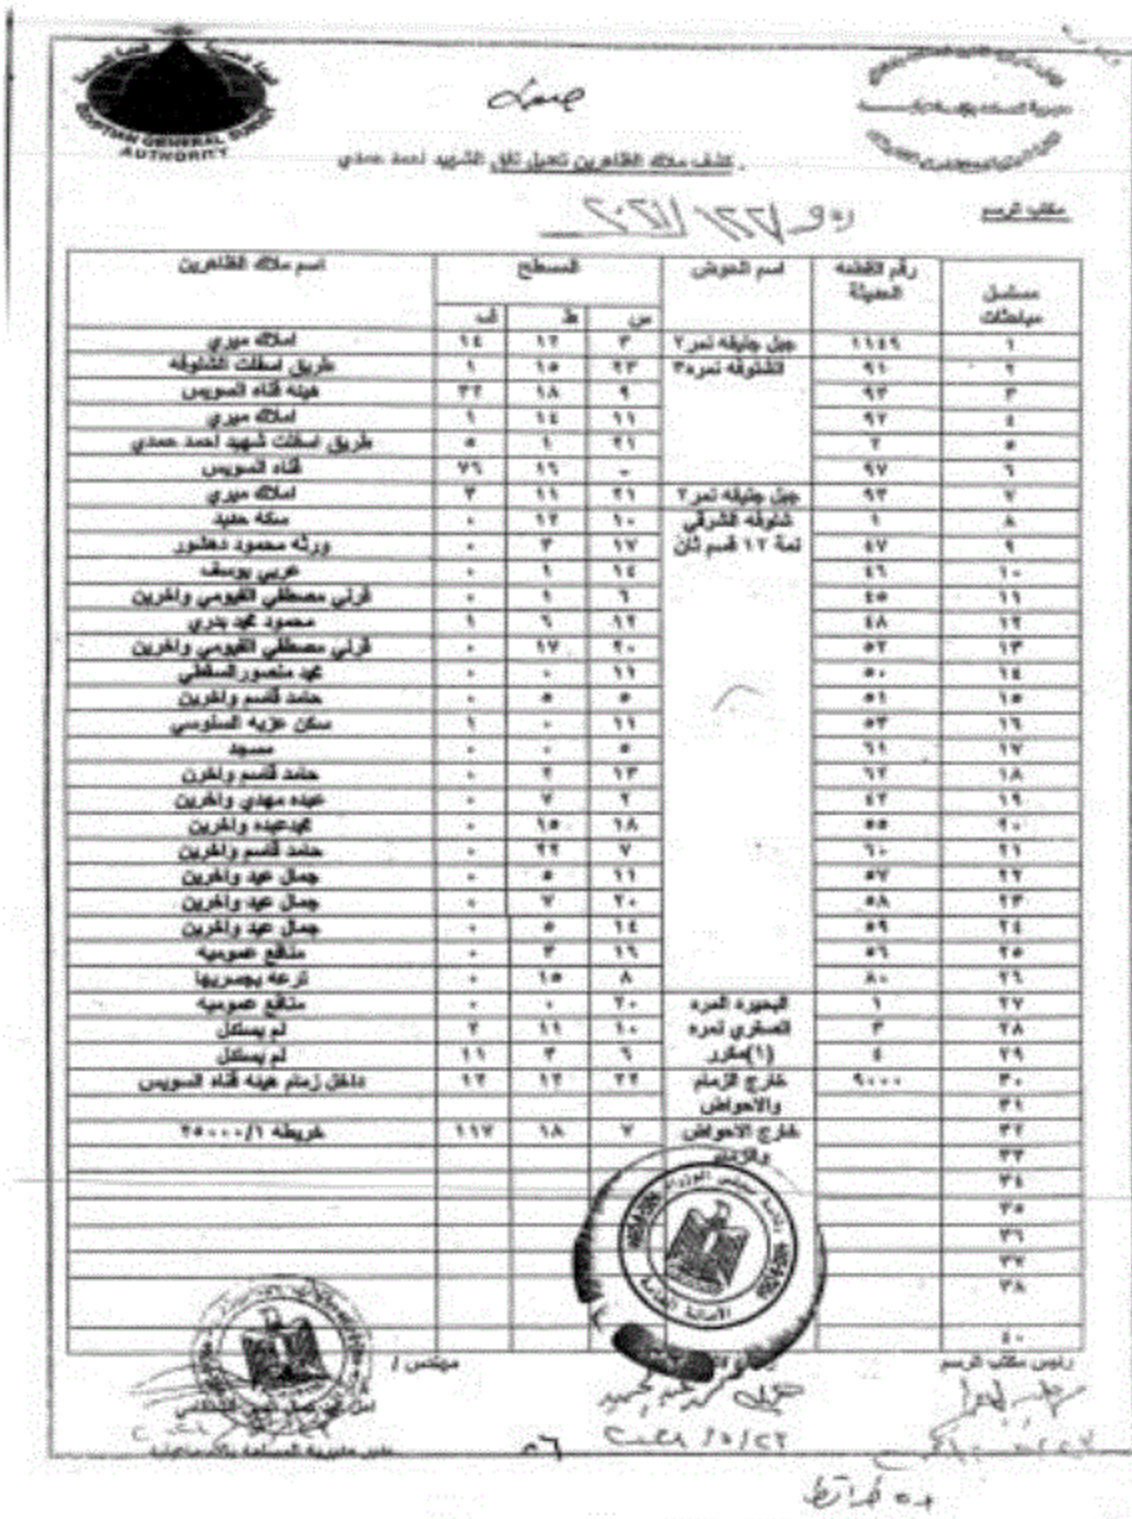 EGYPTIAN GENERAL SURVEY
AUTHORITY
كشف ملاك الظاهرين تحيل نفق الشهيد احمد حمدي
مكتب الرسم
مسلسل مباحثات رقم القطعه الحديثة اسم الحوض المسطح اسم ملاك الظاهرين
س ط ف
١ ١١٤٩ جبل جنيفه نمر٢ ٣ ١٢ ١٤ املاك ميري
٢ ٩١ الشلوفه نمره٣ ٢٣ ١٥ ١ طريق اسفلت الشلوفه
٣ ٩٣ ٩ ١٨ ٣٢ هيئه قناه السويس
٤ ٩٢ ١١ ١٤ ١ املاك ميري
٥ ٢ ٢١ ١ ٥ طريق اسفلت شهيد احمد حمدي
٦ ٩٧ - ١٦ ٧٦ قناه السويس
٧ ٩٣ جبل جنيفه نمر٢ ٢١ ١١ ٣ املاك ميري
٨ ١ شلوفه الشرقي ١٠ ١٢ ٠ سكه حديد
٩ ٤٧ نمة ١٢ قسم ثان ١٧ ٣ ٠ ورثه محمود دهشور
١٠ ٤٦ ١٤ ١ ٠ عربي يوسف
١١ ٤٥ ٦ ١ ٠ قرني مصطفي الفيومي واخرين
١٢ ٤٨ ١٢ ٦ ١ محمود محمد بدري
١٣ ٥٢ ٢٠ ١٧ ٠ قرني مصطفي الفيومي واخرين
١٤ ٥٠ ١١ ٠ ٠ محمد منصور السقطي
١٥ ٥١ ٥ ٥ ٠ حامد قاسم واخرين
١٦ ٥٣ ١١ ٠ ١ سكن عزبه السلوسي
١٧ ٦١ ٥ ٠ ٠ مسجد
١٨ ٦٢ ١٣ ٢ ٠ حامد قاسم واخرن
١٩ ٤٢ ٢ ٧ ٠ عبده مهدي واخرين
٢٠ ٥٥ ١٨ ١٥ ٠ محمدعبده واخرين
٢١ ٦٠ ٧ ٢٢ ٠ حامد قاسم واخرين
٢٢ ٥٧ ١١ ٥ ٠ جمال عيد واخرين
٢٣ ٥٨ ٢٠ ٧ ٠ جمال عيد واخرين
٢٤ ٥٩ ١٤ ٥ ٠ جمال عيد واخرين
٢٥ ٥٦ ١٦ ٣ ٠ منافع عموميه
٢٦ ٨٠ ٨ ١٥ ٠ ترعه بجسريها
٢٧ ١ البحيره المره ٢٠ ٠ ٠ منافع عموميه
٢٨ ٣ الصغري نمره ١٠ ١١ ٢ لم يستدل
٢٩ ٤ (١)مكرر ٦ ٣ ١١ لم يستدل
٣٠ ٩٠٠٠ خارج الزمام ٢٢ ١٢ ١٢ داخل زمام هيئه قناه السويس
٣١ والاحواض
٣٢ خارج الاحواض ٧ ١٨ ١١٧ خريطه ٢٥٠٠٠/١
٣٣ والزمام
٣٤
٣٥
٣٦
٣٧
٣٨
٤٠
رئيس مكتب الرسم
مهندس /
٢٠٢١/٥/٢٣
٥٦